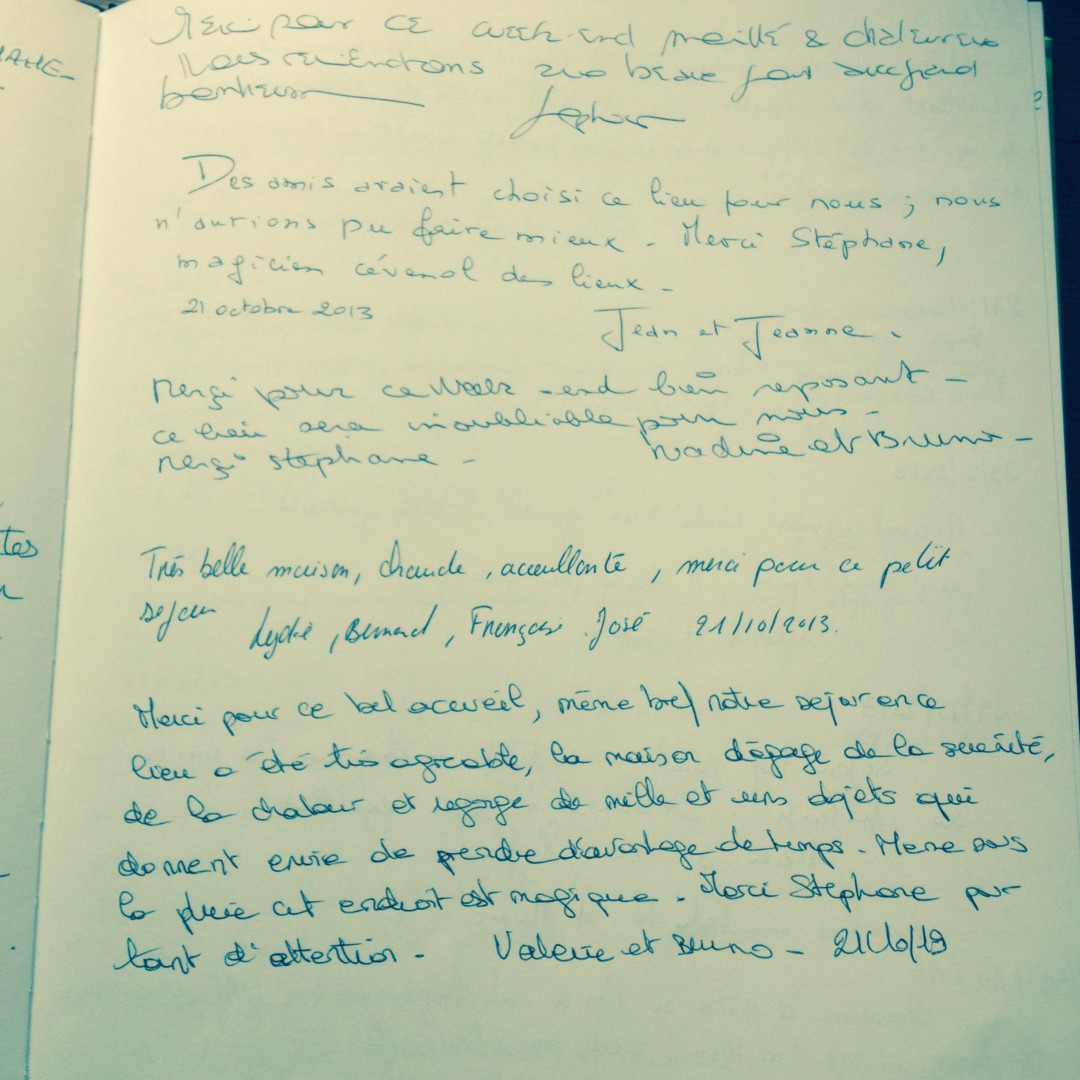 Merci pour ce week-end mouillé & chaleureux
Nous reviendrons au beau pour
bonheur
Des amis avaient choisi ce lieu pour nous ; nous
n'aurions pu faire mieux - Merci Stéphane,
magicien cévenol des lieux -
21 octobre 2013
Jean et Jeanne.
Merçi pour ce Week-end bien reposant -
ce lieu sera inoubliable pour nous -
Merçi stephane - Nadine et Bruno -
tes
Très belle maison, chaude, accueillante, merci pour ce petit
sejour
Lydie, Bernard, Françoise. José 21/10/2013.
Merci pour ce bel accueil, même bref notre sejour en ce
lieu a été très agreable, la maison dégage de la serenité,
de la chaleur et regorge de mille et uns objets qui
donnent envie de prendre d'avantage de temps. Meme sous
la pluie cet endroit est magique. Merci Stéphane pour
tant d'attention - Valerie et Bruno -